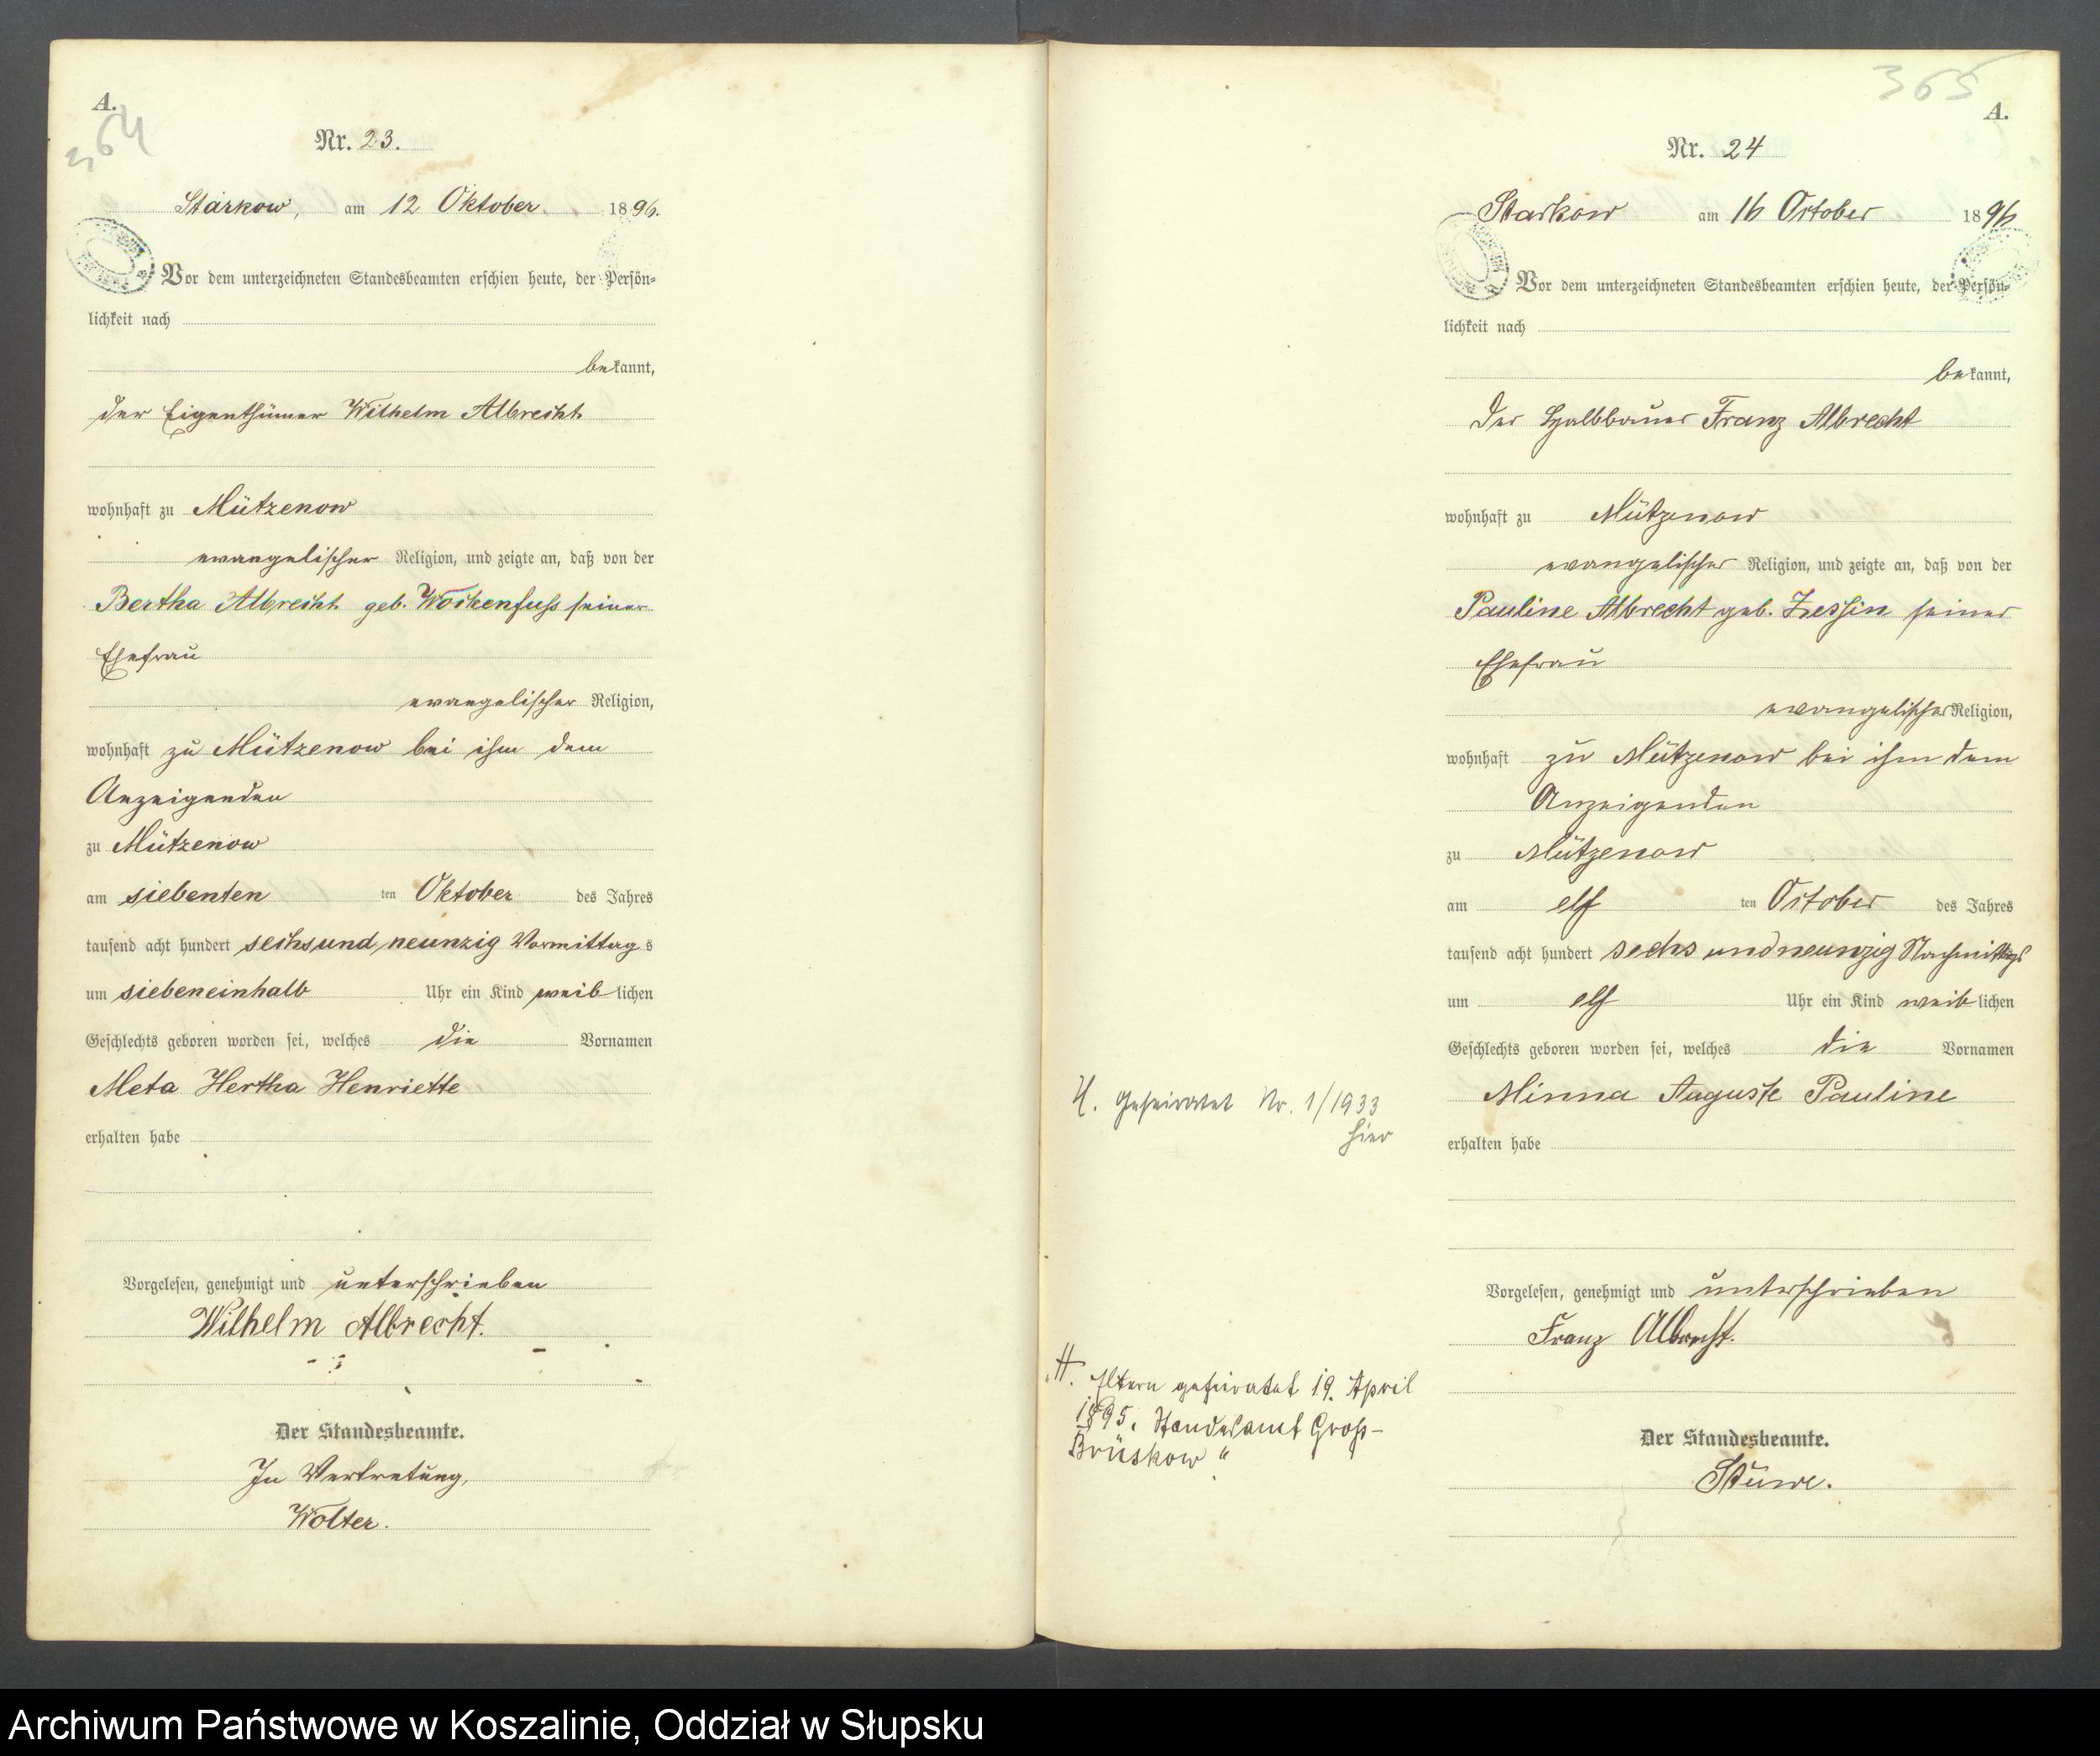 A.
364
Nr. 23.
Starkow, am 12 Oktober 1896.
Vor dem unterzeichneten Standesbeamten erschien heute, der Persön-
lichkeit nach
bekannt,
der Eigenthümer Wilhelm Albrecht
wohnhaft zu Mützenow
evangelischer Religion, und zeigte an, daß von der
Bertha Albrecht geb. Wockenfuss seiner
Ehefrau
evangelischer Religion,
wohnhaft zu Mützenow bei ihm dem
Anzeigenden
zu Mützenow
am siebenten ten Oktober des Jahres
tausend acht hundert sechsund neunzig Vormittag s
um siebeneinhalb Uhr ein Kind weiblichen
Geschlechts geboren worden sei, welches die Vornamen
Meta Hertha Henriette
erhalten habe
Vorgelesen, genehmigt und unterschrieben
Wilhelm Albrecht.
Der Standesbeamte.
In Vertretung,
Wolter.
365
A.
Nr. 24
Starkow am 16 October 1896
Vor dem unterzeichneten Standesbeamten erschien heute, der Persön-
lichkeit nach
bekannt,
der Halbbauer Franz Albrecht
wohnhaft zu Mützenow
evangelischer Religion, und zeigte an, daß von der
Pauline Albrecht geb. Zessin seiner
Ehefrau
evangelischer Religion,
wohnhaft zu Mützenow bei ihm dem
Anzeigenden
zu Mützenow
am elf ten October des Jahres
tausend acht hundert sechs und neunzig Nachmittags
um elf Uhr ein Kind weiblichen
Geschlechts geboren worden sei, welches die Vornamen
Minna Auguste Pauline
erhalten habe
Vorgelesen, genehmigt und unterschrieben
Franz Albrecht.
Der Standesbeamte.
Stüwe.
H. Geheiratet Nr. 1/1933
hier
H. Eltern geheiratet 19. April
1895. Standesamt Groß-
Brüskow "
Archiwum Państwowe w Koszalinie, Oddział w Słupsku